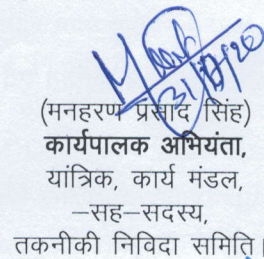 (मनहरण प्रसाद सिंह)
कार्यपालक अभियंता,
यांत्रिक, कार्य मंडल,
–सह–सदस्य,
तकनीकी निविदा समिति।